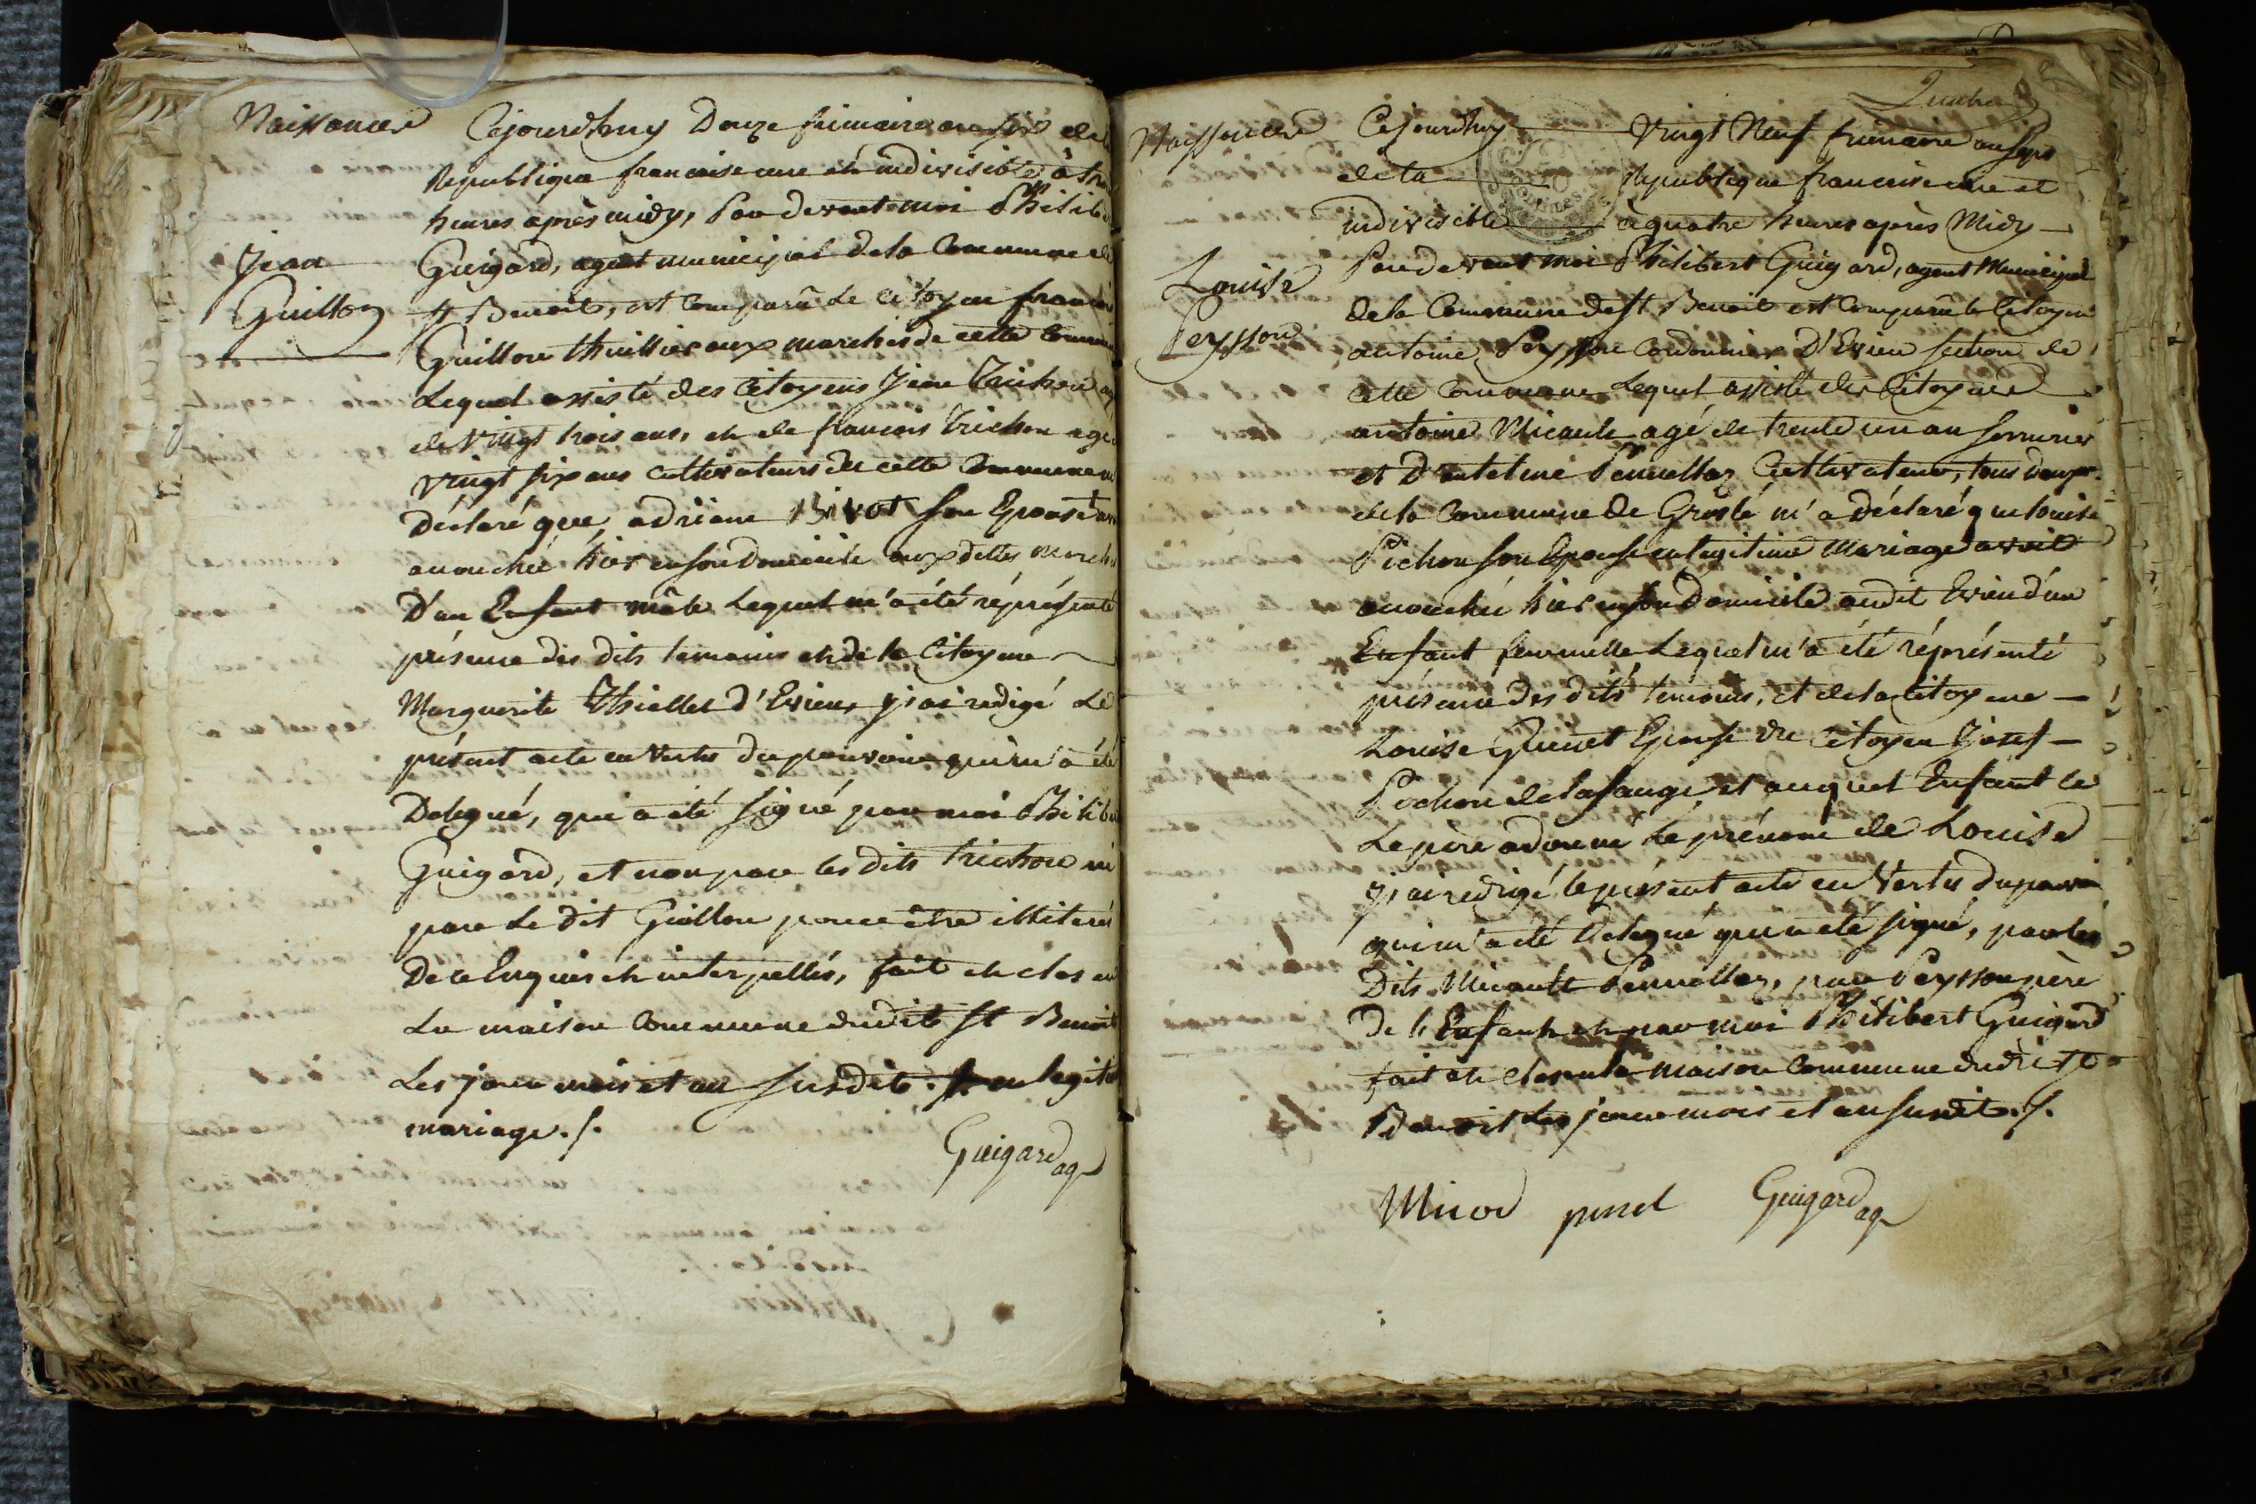 Naissances
Jean
Guillon
Cejourdhuy Douze frimaire an sept de la
Republique francaise une et indivisible à
heures après midy, Par devant moi Philibe
Guigard, agent municipal de la Commune de
St Benoit, est comparu le Citoyen francois
Guillon thuillier aux marches de cette Commu
Lequel assisté des Citoyens Jean Trichon
de Vingt trois ans, et de francois Trichon age
Vingt six ans cultivateurs de cette Commune
Déclaré que, adriane Bivot son Epouse
accouchée hier en son Domicile aux dittes march
D'un Enfant mâle Lequel m'a été réprésenté
présence des dits temoins et de la Citoyene
Marguerite Thiollet d'Evieu, j'ai redigé Le
présent acte en Vertu du pouvoir qui m'a été
Delegué, qui a été signé par moi Philibe
Guigard, et non par les dits trichon ni
par Le dit Guillon pour être illiterés
De ce Enquis et interpellés, fait et clos en
La maison Commune dudit St Benoit
Les jour mois et an susdit. en legit
mariage ./.
Guigard ag
Quatre
Naissances
Louise
Peysson
Cejourdhuy Vingt Neuf frimaire an sept
de la Republique francaise une et
indivisible à quatre heures après Midy
Par devant moi Philibert Guigard, agent Municipal
de la Commune de St Benoit est Comparu le Citoyen
antoine Peysson Cordonnier D'Evieu section de
cette Commune Lequel assisté des Citoyens
antoine Micaute agé de trente un an serrurier
et D'antelme Pennellaz Cultivateur, tous deux
de la Commune de Groslé m'a déclaré que Louise
Pichon son Epouse en legitime Mariage avoit
accouché hier en son Domicile audit Evieu d'un
Enfant femmelle Lequel m'a été réprésenté
présence des dits temoins, et de la Citoyene
Louise Guinet Epouse du Citoyen Josef
Pochon et auquel Enfant le
Le père a donné Le prénom de Louise
J'ai redigé le présent acte en Vertu du pouvoir
qui m'a été Delegué qui a été signé, par les
Dits Micaute Pennellaz, par Peysson père
de l'Enfant et par moi Philibert Guigard
fait et clos en la maison Commune dudit St
Benoit Les jour mois et an susdit ./.
Micod penel Guigard ag